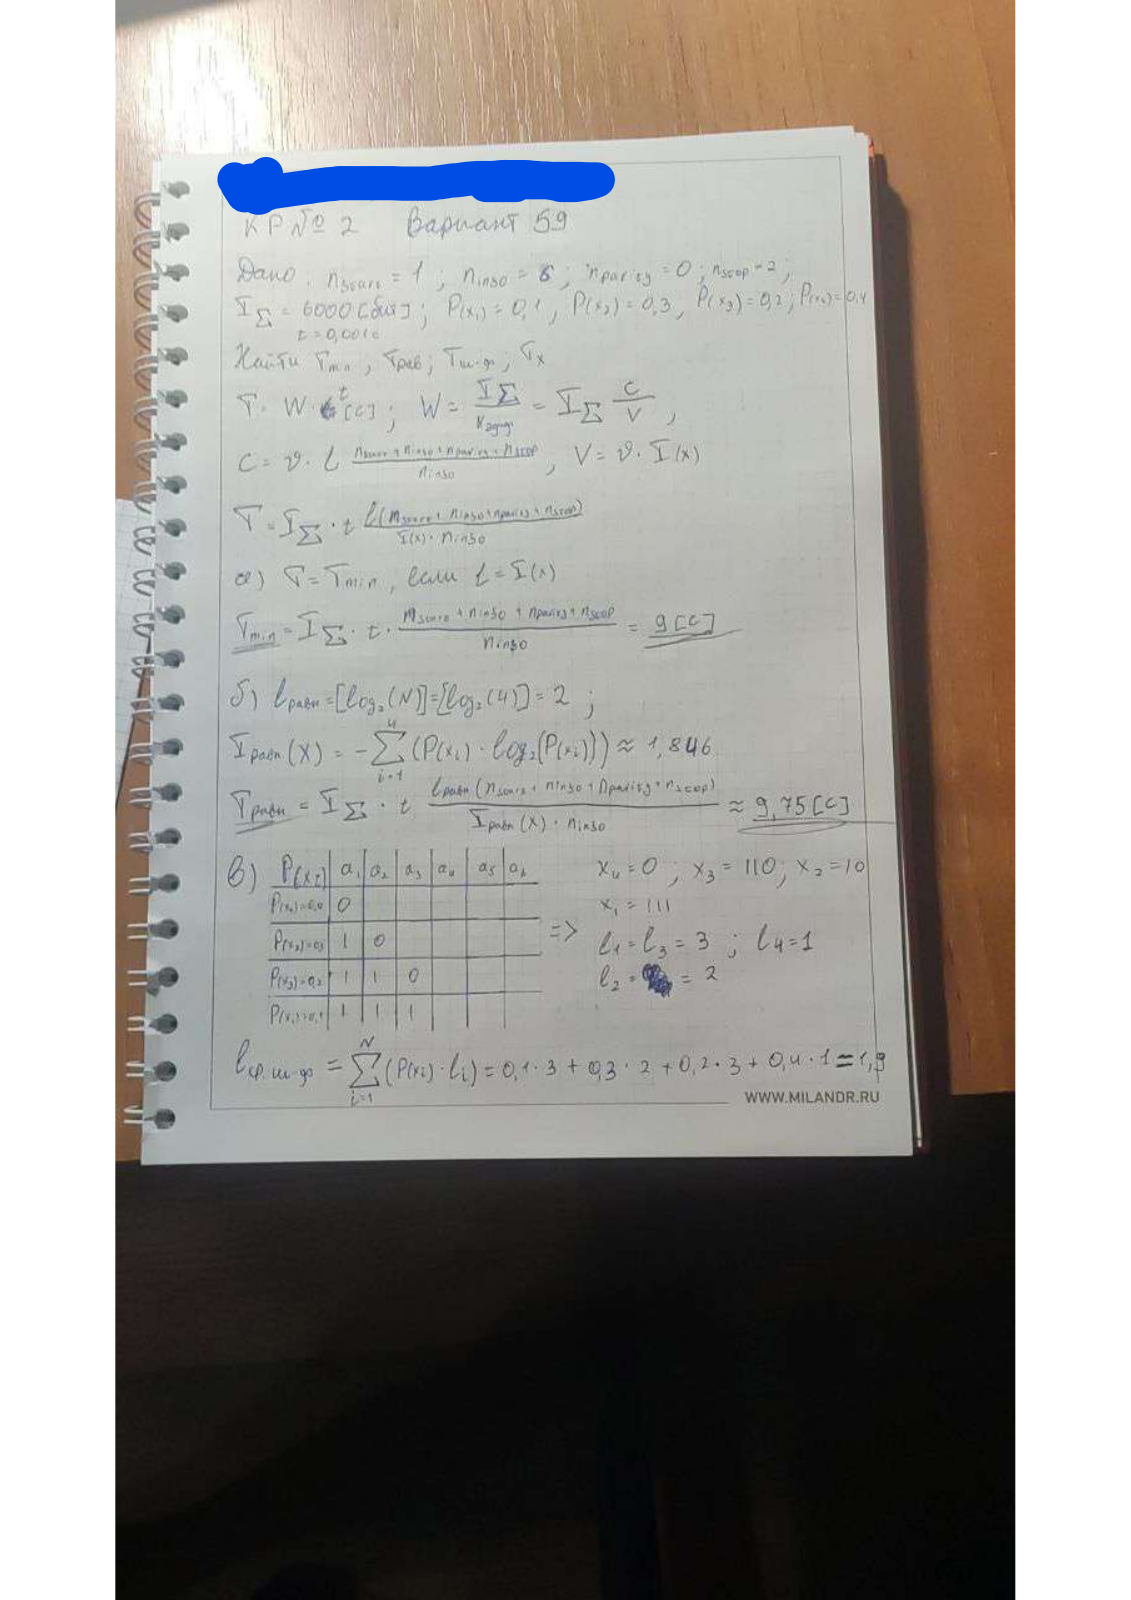 КР №2 Вариант 59
Дано: n start = 1; n info = 6; n parity = 0; n stop = 2;
I_Σ = 6000 [бит]; P(x₁) = 0,1, P(x₂) = 0,3, P(x₃) = 0,2; P(x₄) = 0,4
t = 0,001 c
Найти T min, T рав; T ш-ф; T x
T = W · t [c]; W = I_Σ / K эфф = I_Σ C/V,
C = ϑ · l (n start + n info + n parity + n stop) / n info, V = ϑ · I(x)
T = I_Σ · t l(n start + n info + n parity + n stop) / I(x) · n info
а) T = T min, если l = I(x)
T min = I_Σ · t · (n start + n info + n parity + n stop) / n info = 9 [c]
б) l равн = [log₂(N)] = [log₂(4)] = 2;
I равн (X) = -∑ i=1 4 (P(xi) · log₂(P(xi))) ≈ 1,846
T равн = I_Σ · t l равн (n start + n info + n parity + n stop) / I равн (X) · n info ≈ 9,75 [c]
в) P(xi) a₁ a₂ a₃ a₄ a₅ a₆
P(x₄)=0,4 0
P(x₂)=0,3 1 0
P(x₃)=0,2 1 1 0
P(x₁)=0,1 1 1 1
=>
x₄ = 0; x₃ = 110; x₂ = 10
x₁ = 111
l₁ = l₃ = 3; l₄ = 1
l₂ = = 2
l ср.ш-ф = ∑ i=1 N (P(xi) · li) = 0,1 · 3 + 0,3 · 2 + 0,2 · 3 + 0,4 · 1 = 1,9
WWW.MILANDR.RU